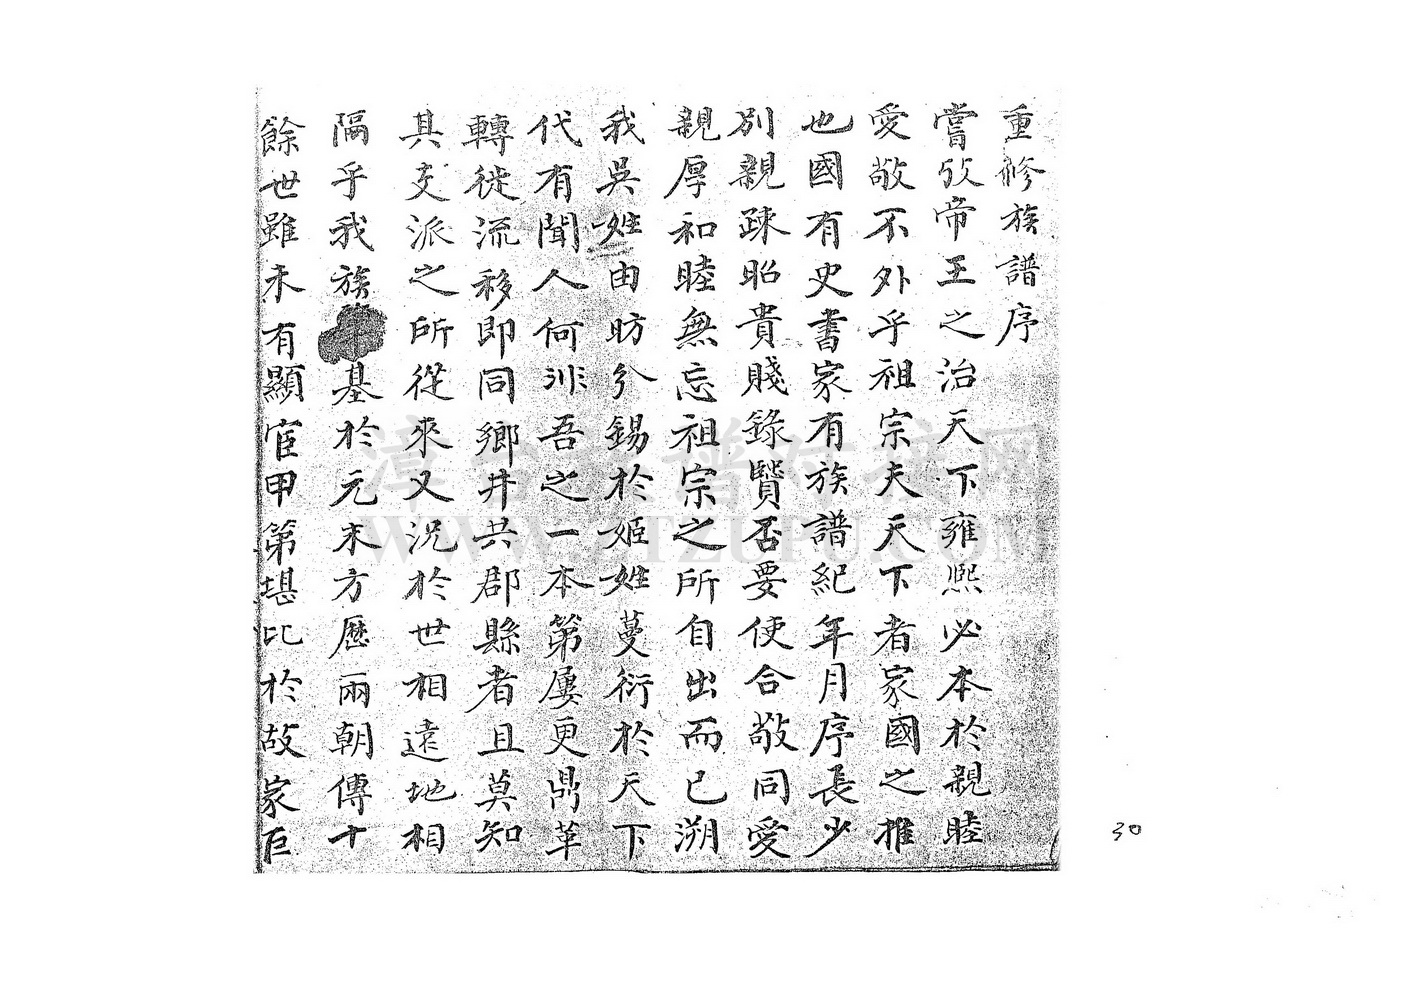 重修族譜序
嘗攷帝王之治天下雍熙必本於親睦
愛敬不外乎祖宗夫天下者家國之推
也國有史書家有族譜紀年月序長少
別親疎昭貴賤錄賢否要使合敬同愛
親厚和睦無忘祖宗之所自出而已溯
我吳姓由昉分錫於姬姓蔓衍於天下
代有聞人何非吾之一本第屢更鼎革
轉徙流移即同鄉井共郡縣者且莫知
其支派之所從來又況於世相遠地相
隔乎我族基於元末方歷兩朝傳十
餘世雖未有顯宦甲第堪比於故家巨
漳台族谱对接网
WWW.ZTZUPU.COM
30